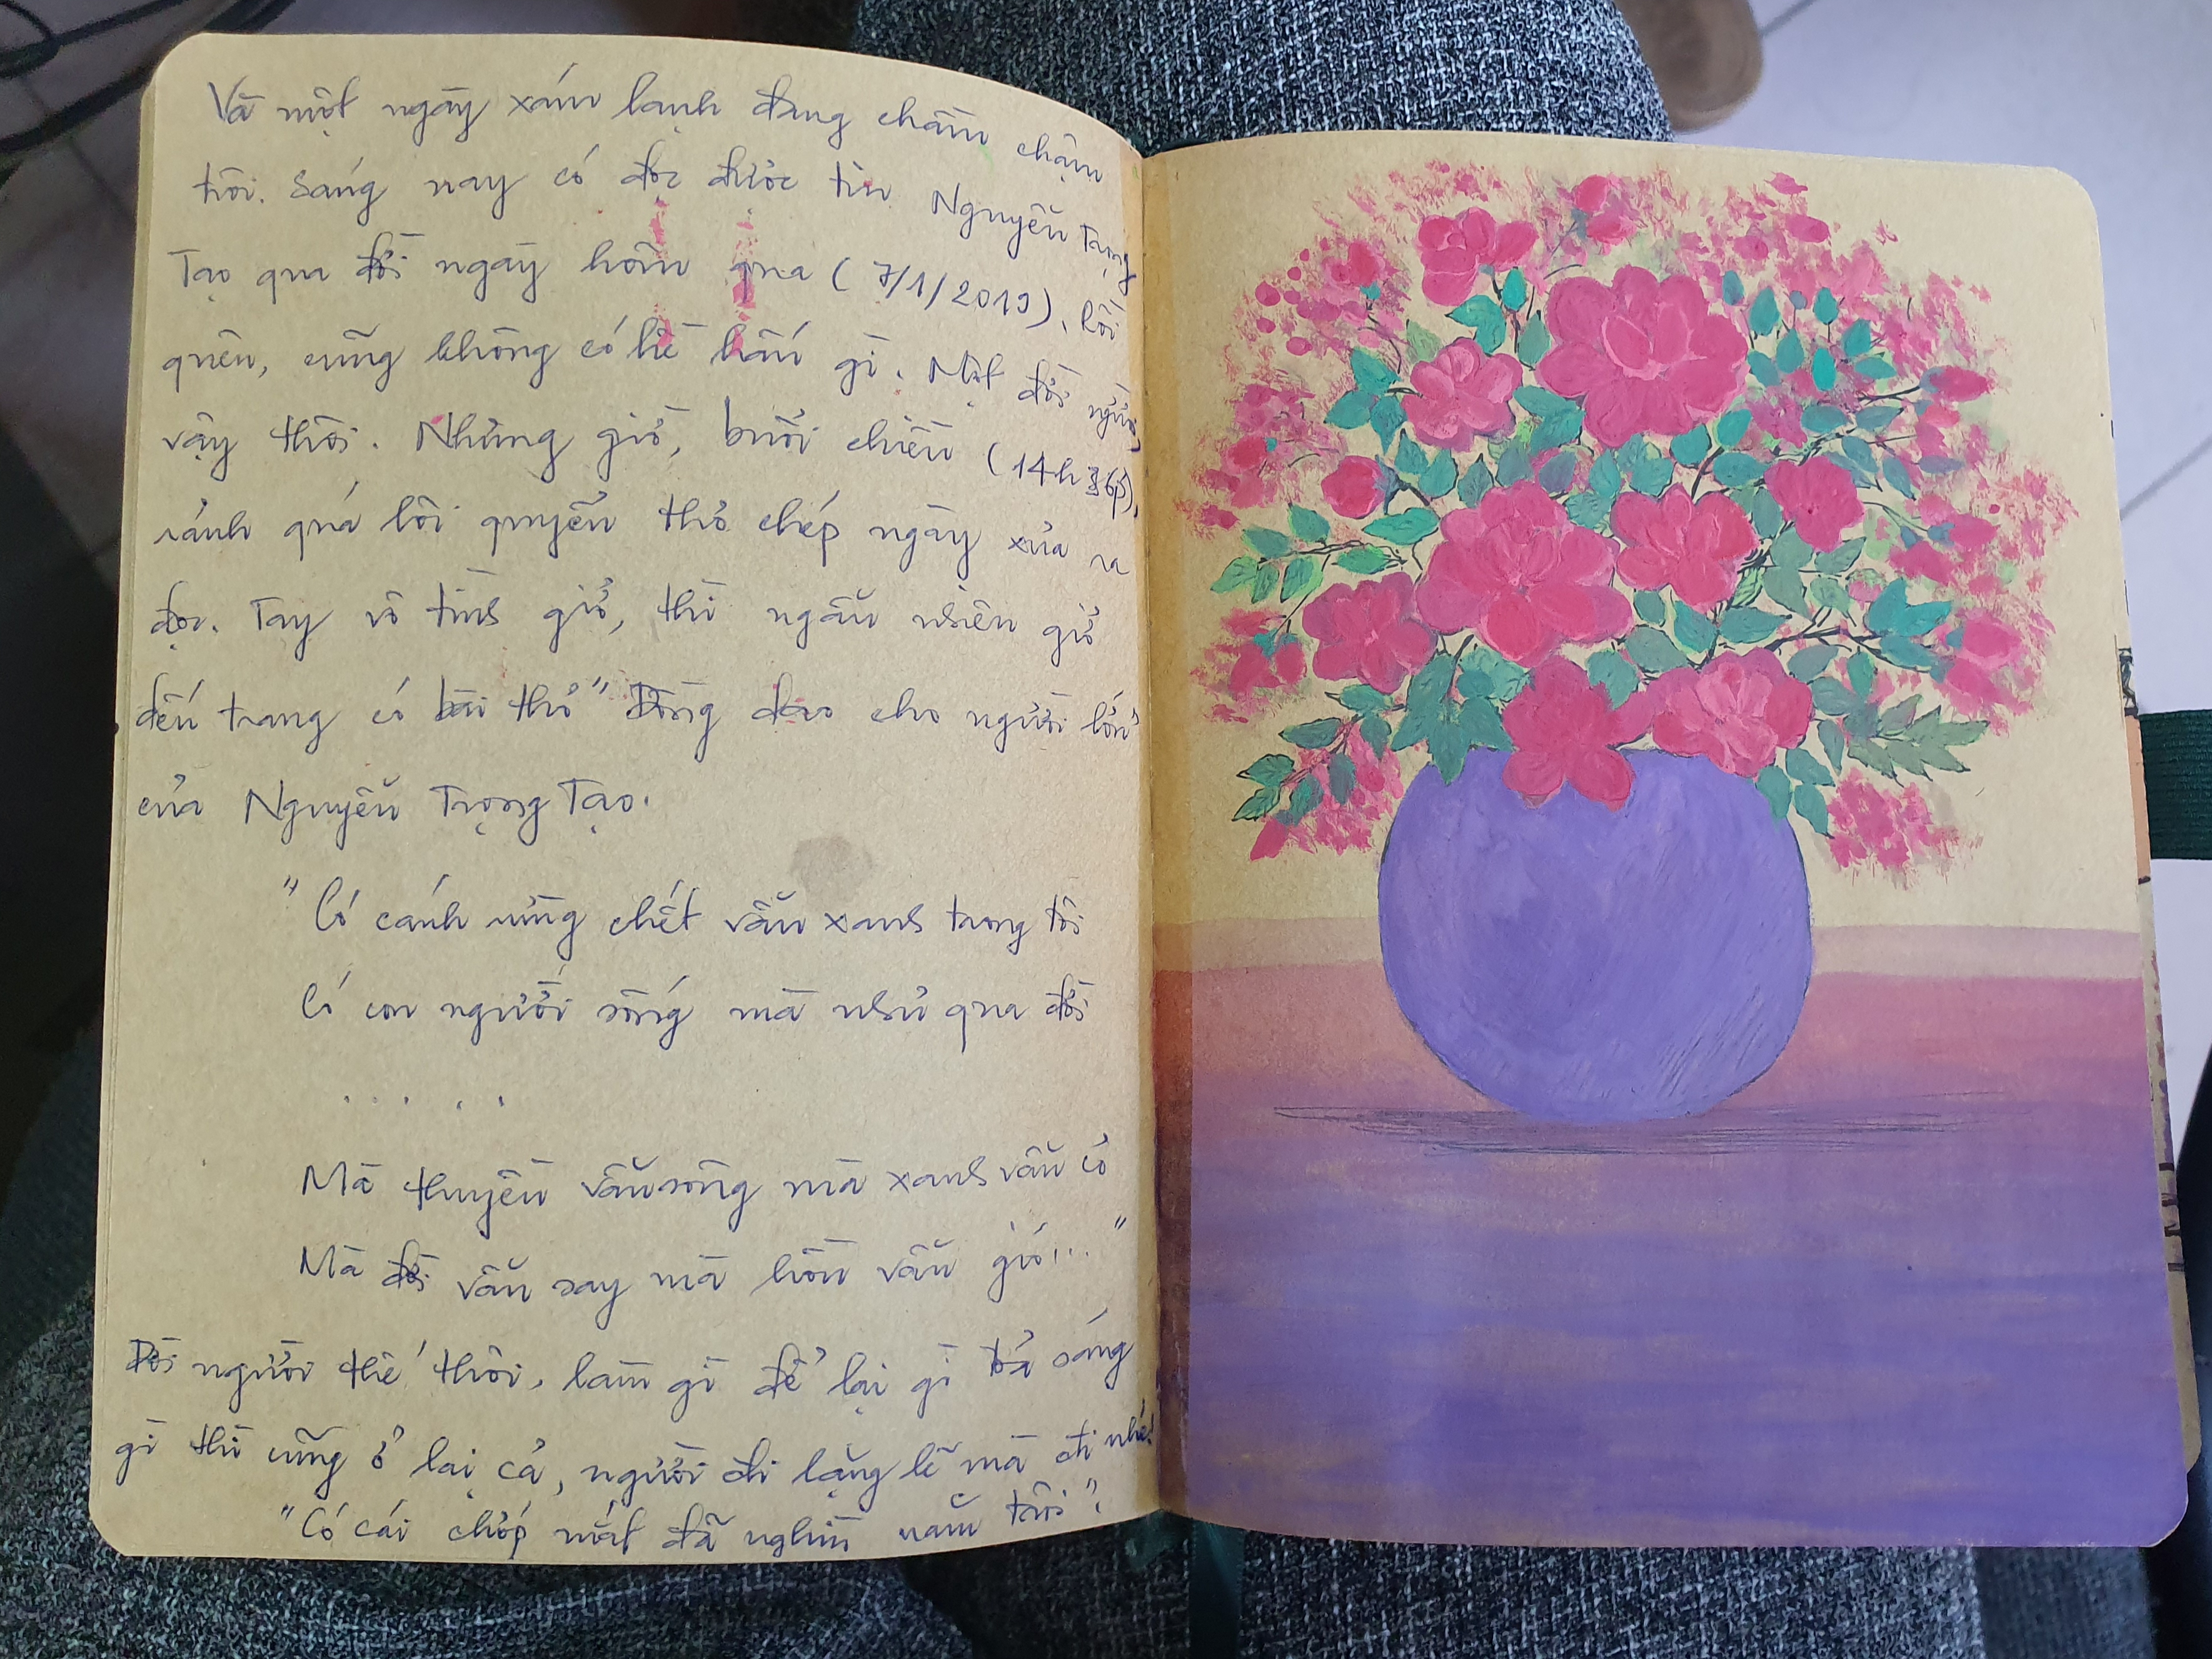 Và một ngày xám lạnh đang chầm chậm
trôi. Sáng nay có đọc được tin Nguyễn Trọng
Tạo qua đời ngày hôm qua (7/1/2019), rồi
quên, cũng không có hề hấn gì. Một đời người
vậy thôi. Nhưng giờ, buổi chiều (14h36p),
rảnh quá lôi quyển thơ chép ngày xưa ra
đọc. Tay vô tình giở, thì ngẫu nhiên giở
đến trang có bài thơ "Đồng dao cho người lớn"
của Nguyễn Trọng Tạo.
"Có cánh rừng chết vẫn xanh trong tôi
Có con người sống mà như qua đời
. . . . .
Mà thuyền vẫn sông mà xanh vẫn cỏ
Mà đời vẫn say mà hồn vẫn gió..."
Đời người thế thôi, làm gì để lại gì bỏ sáng
gì thì cũng ở lại cả, người đi lặng lẽ mà đi nhé!
"Có cái chớp mắt đã nghìn năm trôi".